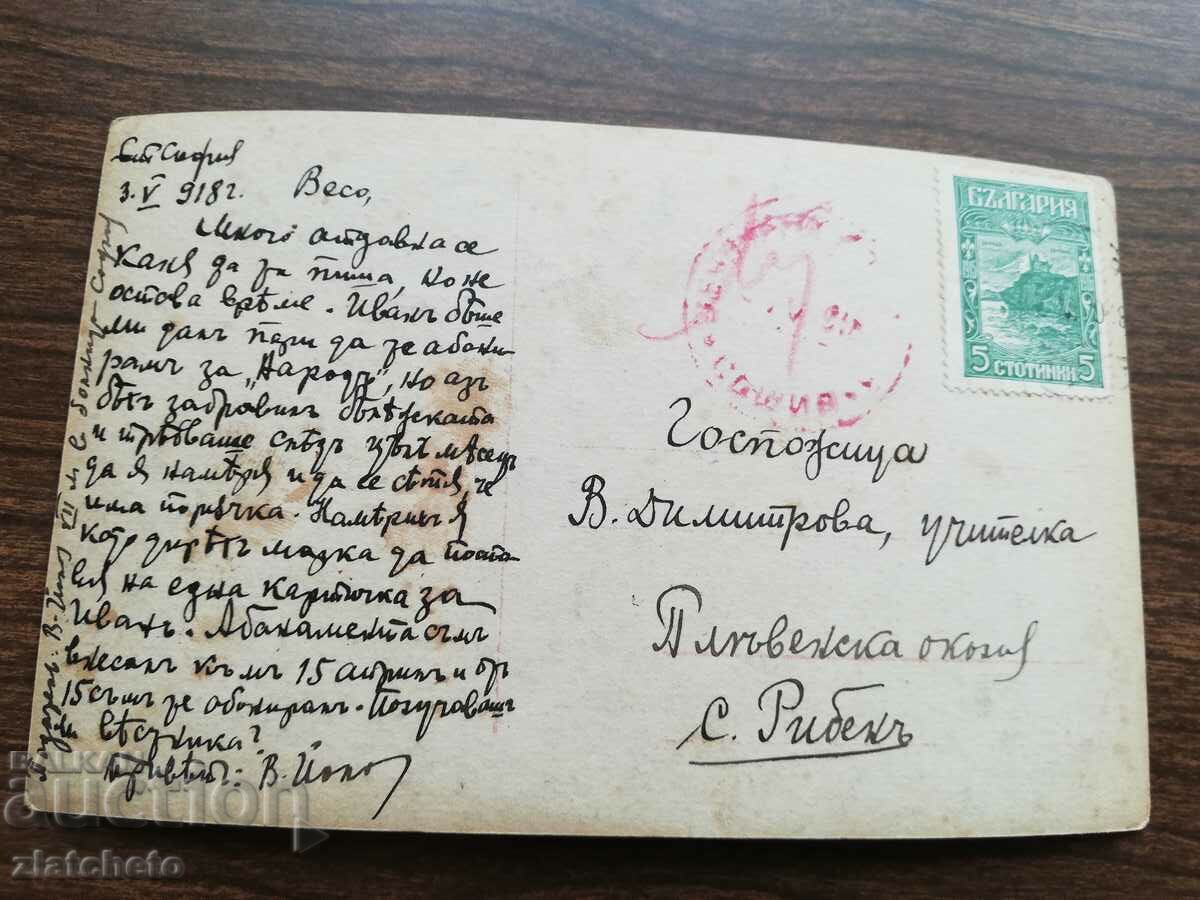 София
3.V 918 г. Весо,
Много отдавна се
каня да ти пиша, но не
остова врѣме. Иванъ бѣше
ми далъ пари да те абони-
рамъ за „Народъ", но азъ
бѣхъ забравилъ бѣлѣжката
и трѣбваше слѣдъ цѣлъ мѣсецъ
да я намѣря и да се сѣтя, че
има поръчка. Намѣрихъ я
като дирѣхъ марка да поста-
вя на една картичка за
Иванъ. Абонамента съмъ
внесълъ къмъ 15 априлъ и отъ
15 съмъ те абониралъ. Получавашъ
ли вѣстника?
Привѣтъ: В. Йото
В. Йото VII болница София
СОФИЯ
БЪЛГАРИЯ
5 СТОТИНКИ 5
Госпожица
В. Димитрова, учителка
Плѣвенска околия
с. Рибенъ
BALKAN
auction
zlatcheto